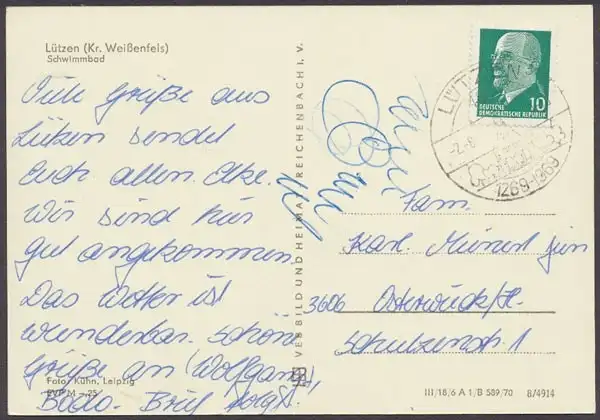 Lützen (Kr. Weißenfels)
Schwimmbad
Gute Grüße aus
Lützen sendet
Euch allen Elke.
Wir sind hier
gut angekommen.
Das Wetter ist
wunderbar. Schöne
Grüße an (Wolfgang),
Bodo.
Foto: Kühn, Leipzig
EVP M -,25
VEB BILD UND HEIMAT REICHENBACH I. V.
DEUTSCHE
DEMOKRATISCHE REPUBLIK
10
1269-1969
Fam.
Karl
jun
3606
Schulzenstr 1
III/18/6 A 1/B 589/70 8/4914